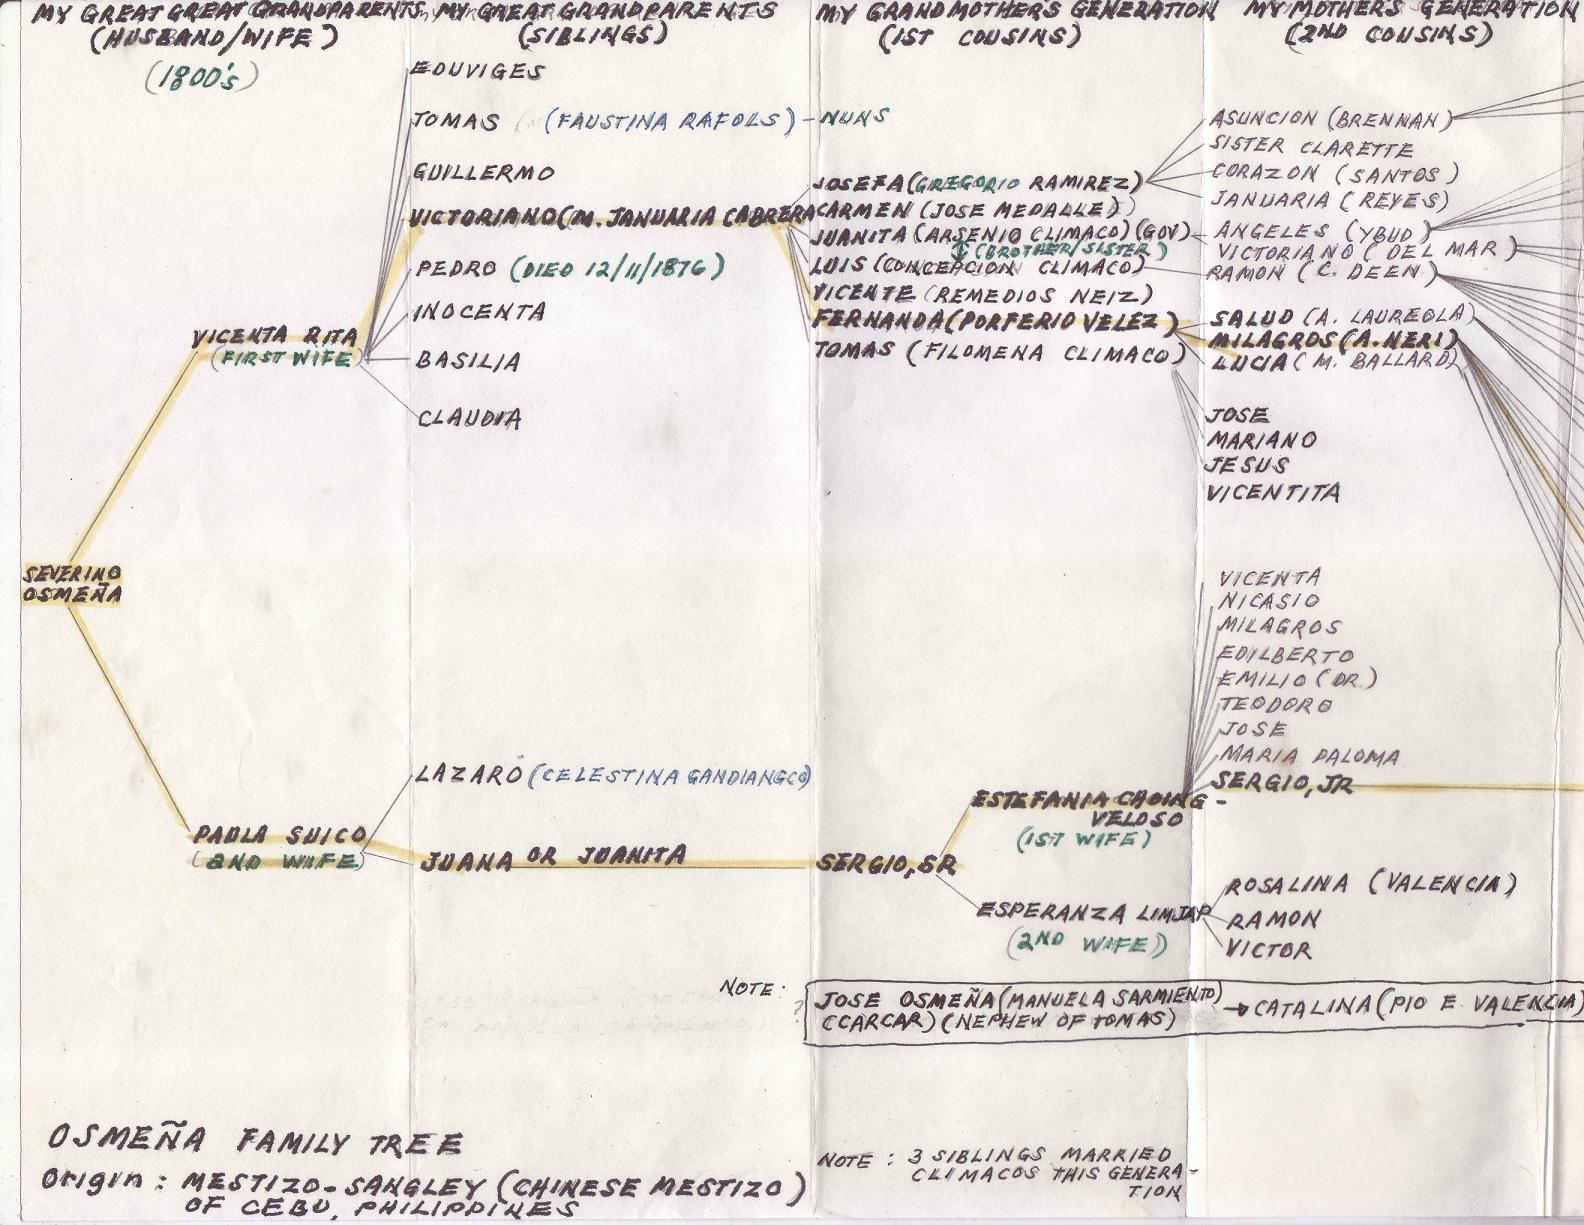 MY GREAT GREAT GRANDPARENTS
(HUSBAND/WIFE)
(1800's)
MY GREAT GRANDPARENTS
(SIBLINGS)
MY GRANDMOTHER'S GENERATION
(1ST COUSINS)
MY MOTHER'S GENERATION
(2ND COUSINS)
SEVERINO
OSMEÑA
VICENTA RITA
(FIRST WIFE)
PAULA SUICO
(2ND WIFE)
EDUVIGES
TOMAS (FAUSTINA RAFOLS) - NUNS
GUILLERMO
VICTORIANO (M. JANUARIA CABRERA
PEDRO (DIED 12/11/1876)
INOCENTA
BASILIA
CLAUDIA
LAZARO (CELESTINA GANDIANGCO)
JUANA OR JUANITA
JOSEFA (GREGORIO RAMIREZ)
CARMEN (JOSE MEDALLE)
JUANITA (ARSENIO CLIMACO) (GOV)
↕ (BROTHER/SISTER)
LUIS (CONCEPCION CLIMACO)
VICENTE (REMEDIOS NEIZ)
FERNANDA (PORFERIO VELEZ)
TOMAS (FILOMENA CLIMACO)
SERGIO, SR
ESTEFANIA CHOING-
VELOSO
(1ST WIFE)
ESPERANZA LIMJAP
(2ND WIFE)
ASUNCION (BRENNAN)
SISTER CLARETTE
CORAZON (SANTOS)
JANUARIA (REYES)
ANGELES (YBUD)
VICTORIANO (DEL MAR)
RAMON (C. DEEN)
SALUD (A. LAUREOLA)
MILAGROS (A. NERI)
LUCIA (M. BALLARD)
JOSE
MARIANO
JESUS
VICENTITA
VICENTA
NICASIO
MILAGROS
EDILBERTO
EMILIO (DR.)
TEODORO
JOSE
MARIA PALOMA
SERGIO, JR
ROSALINA (VALENCIA)
RAMON
VICTOR
NOTE:
? JOSE OSMEÑA (MANUELA SARMIENTO) → CATALINA (PIO E. VALENCIA)
(CARCAR) (NEPHEW OF TOMAS)
OSMEÑA FAMILY TREE
Origin : MESTIZO-SANGLEY (CHINESE MESTIZO)
OF CEBU, PHILIPPINES
NOTE : 3 SIBLINGS MARRIED
CLIMACOS THIS GENERA-
TION